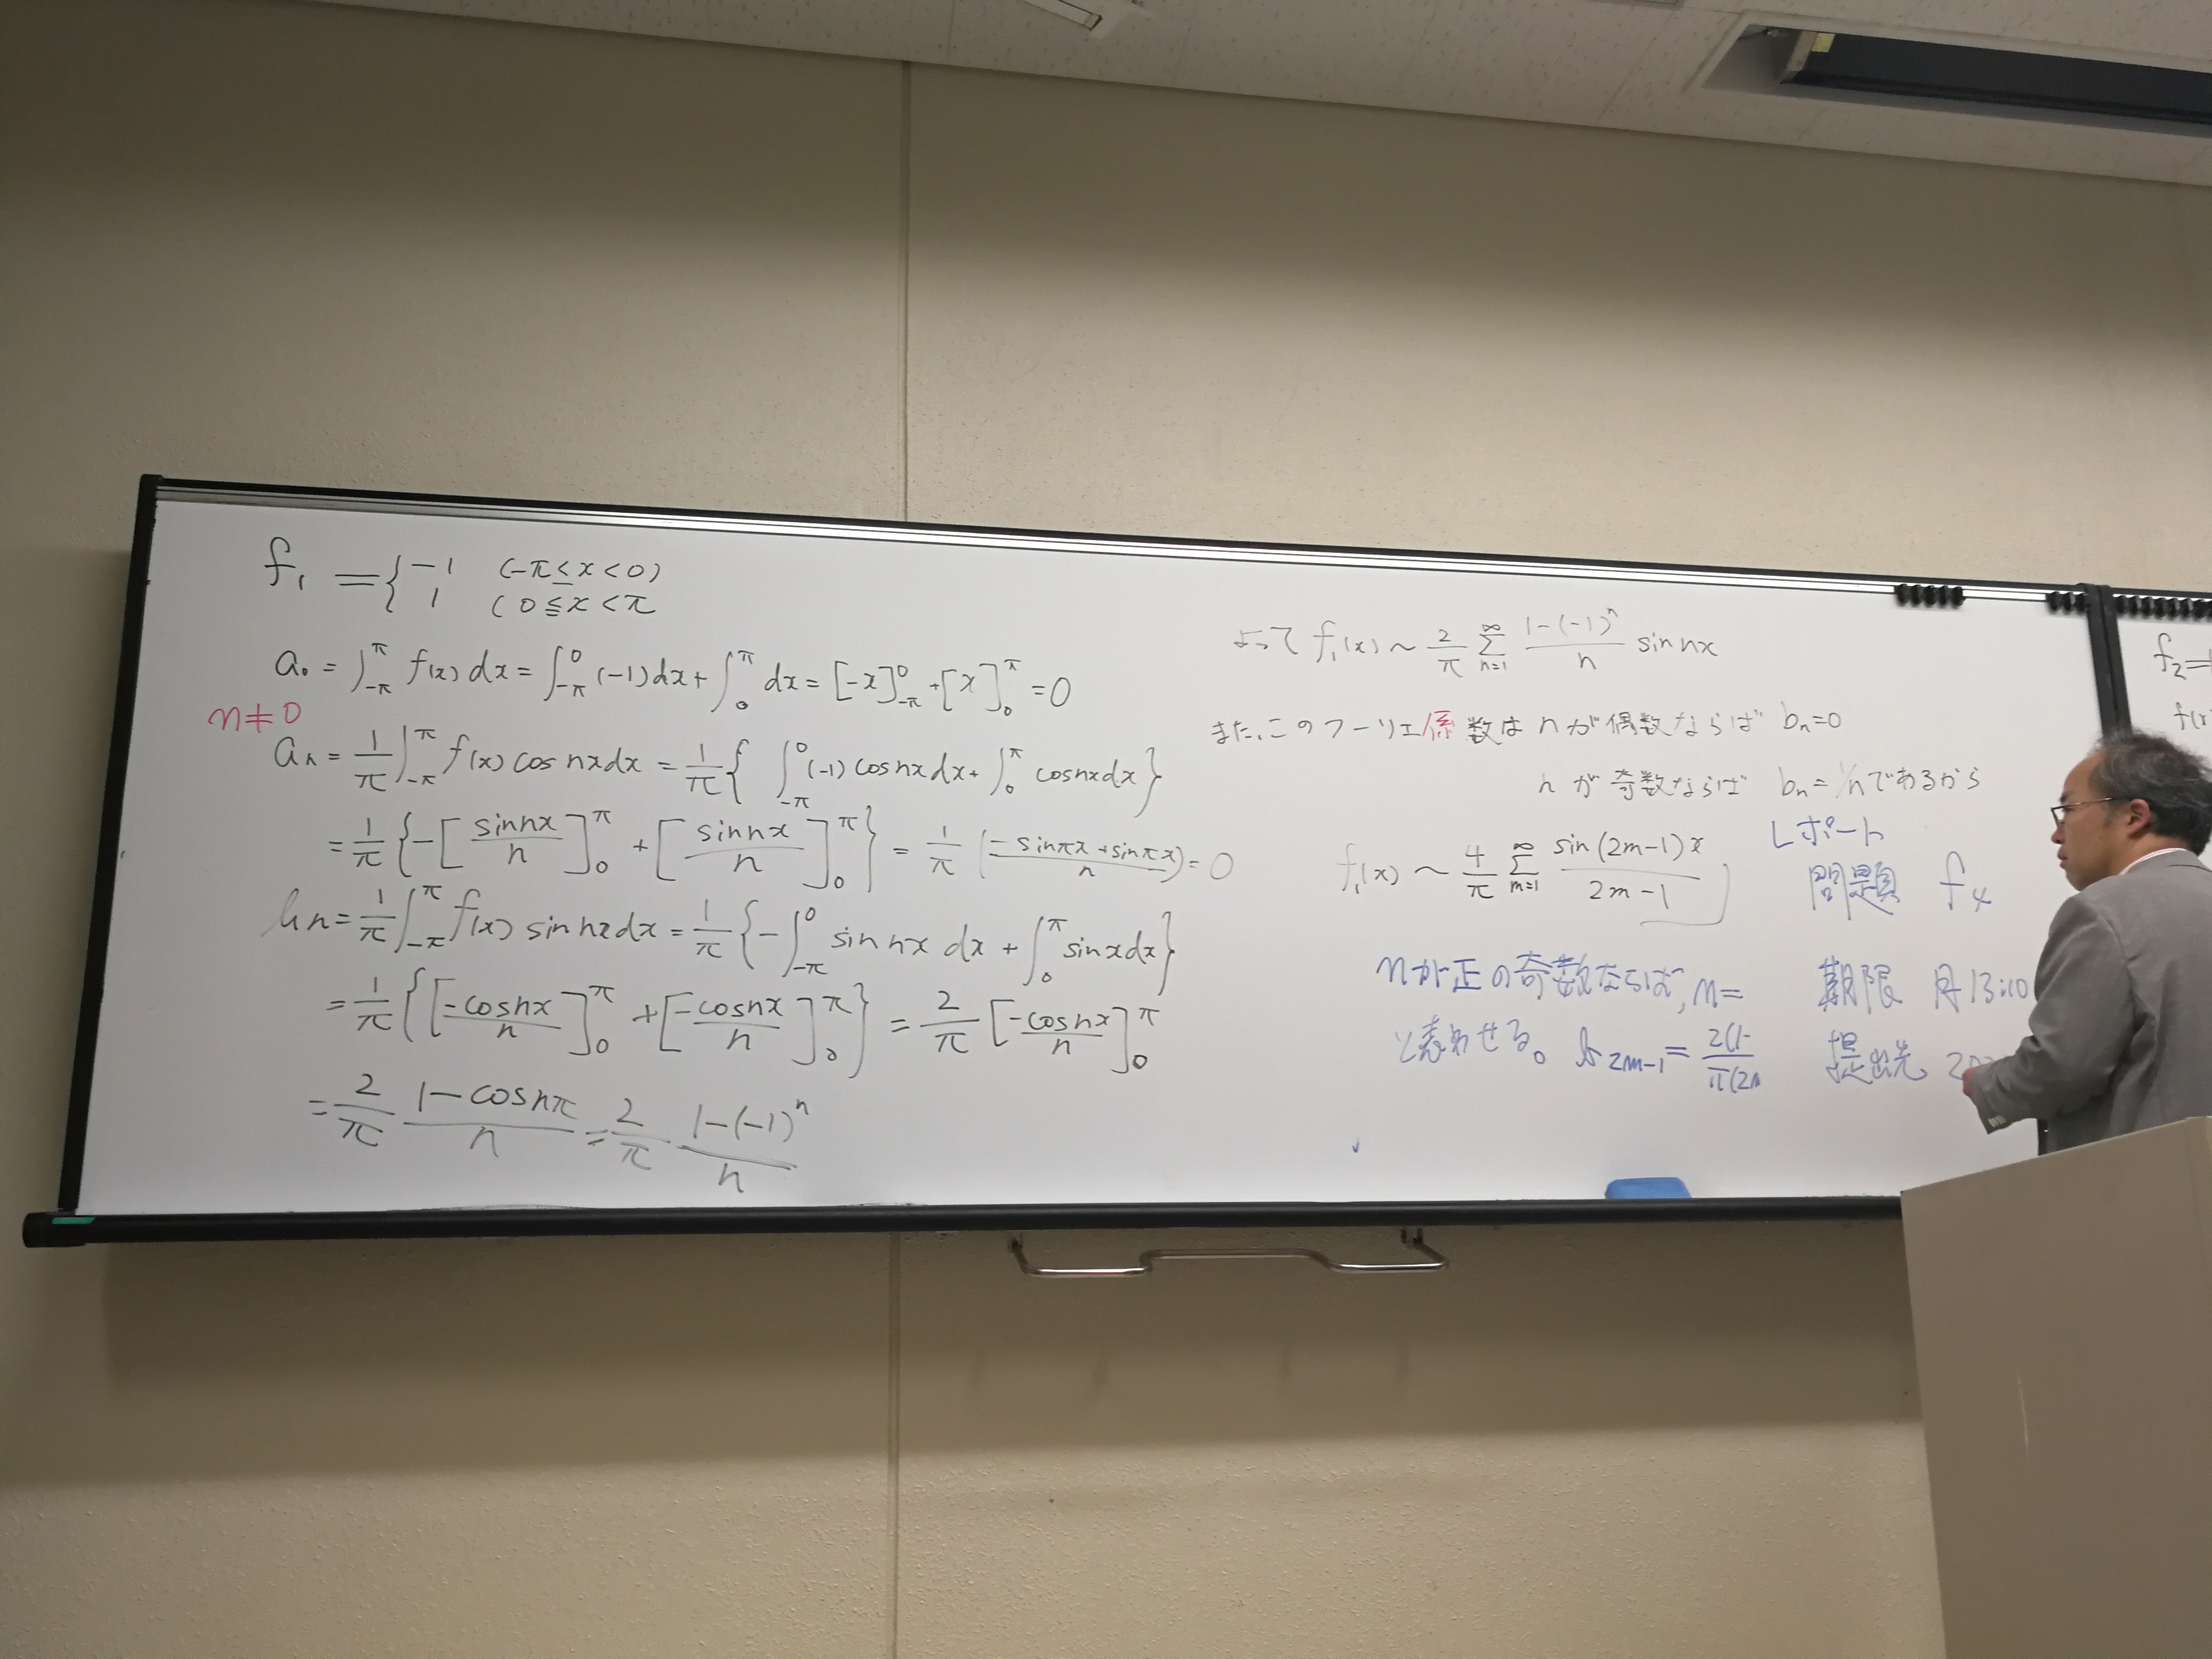 f₁ = { -1 (-π ≤ x < 0)
1 (0 ≦ x < π
a₀ = ∫_{-π}^{π} f(x) dx = ∫_{-π}^{0} (-1) dx + ∫_{0}^{π} dx = [-x]_{-π}^{0} + [x]_{0}^{π} = 0
n ≠ 0
aₙ = 1/π ∫_{-π}^{π} f(x) cos nx dx = 1/π { ∫_{-π}^{0} (-1) cos nx dx + ∫_{0}^{π} cos nx dx }
= 1/π { -[sin nx / n]_{0}^{π} + [sin nx / n]_{0}^{π} } = 1/π (-sin πx + sin πx / n) = 0
bₙ = 1/π ∫_{-π}^{π} f(x) sin nx dx = 1/π { -∫_{-π}^{0} sin nx dx + ∫_{0}^{π} sin x dx }
= 1/π { [-cos nx / n]_{0}^{π} + [-cos nx / n]_{0}^{π} } = 2/π [-cos nx / n]_{0}^{π}
= 2/π (1 - cos nπ)/n = 2/π (1 - (-1)ⁿ)/n
よって f₁(x) ~ 2/π Σ_{n=1}^{∞} (1 - (-1)ⁿ)/n sin nx
また、このフーリエ係数は n が偶数ならば bₙ = 0
n が奇数ならば bₙ = 1/n であるから
f₁(x) ~ 4/π Σ_{m=1}^{∞} sin(2m-1)x / (2m-1)
nが正の奇数ならば, n =
と表わせる。 b_{2m-1} = 2(1- / π(2m
レポート
問題 f₄
期限 月 13:10
提出先
f₂ =
f(x